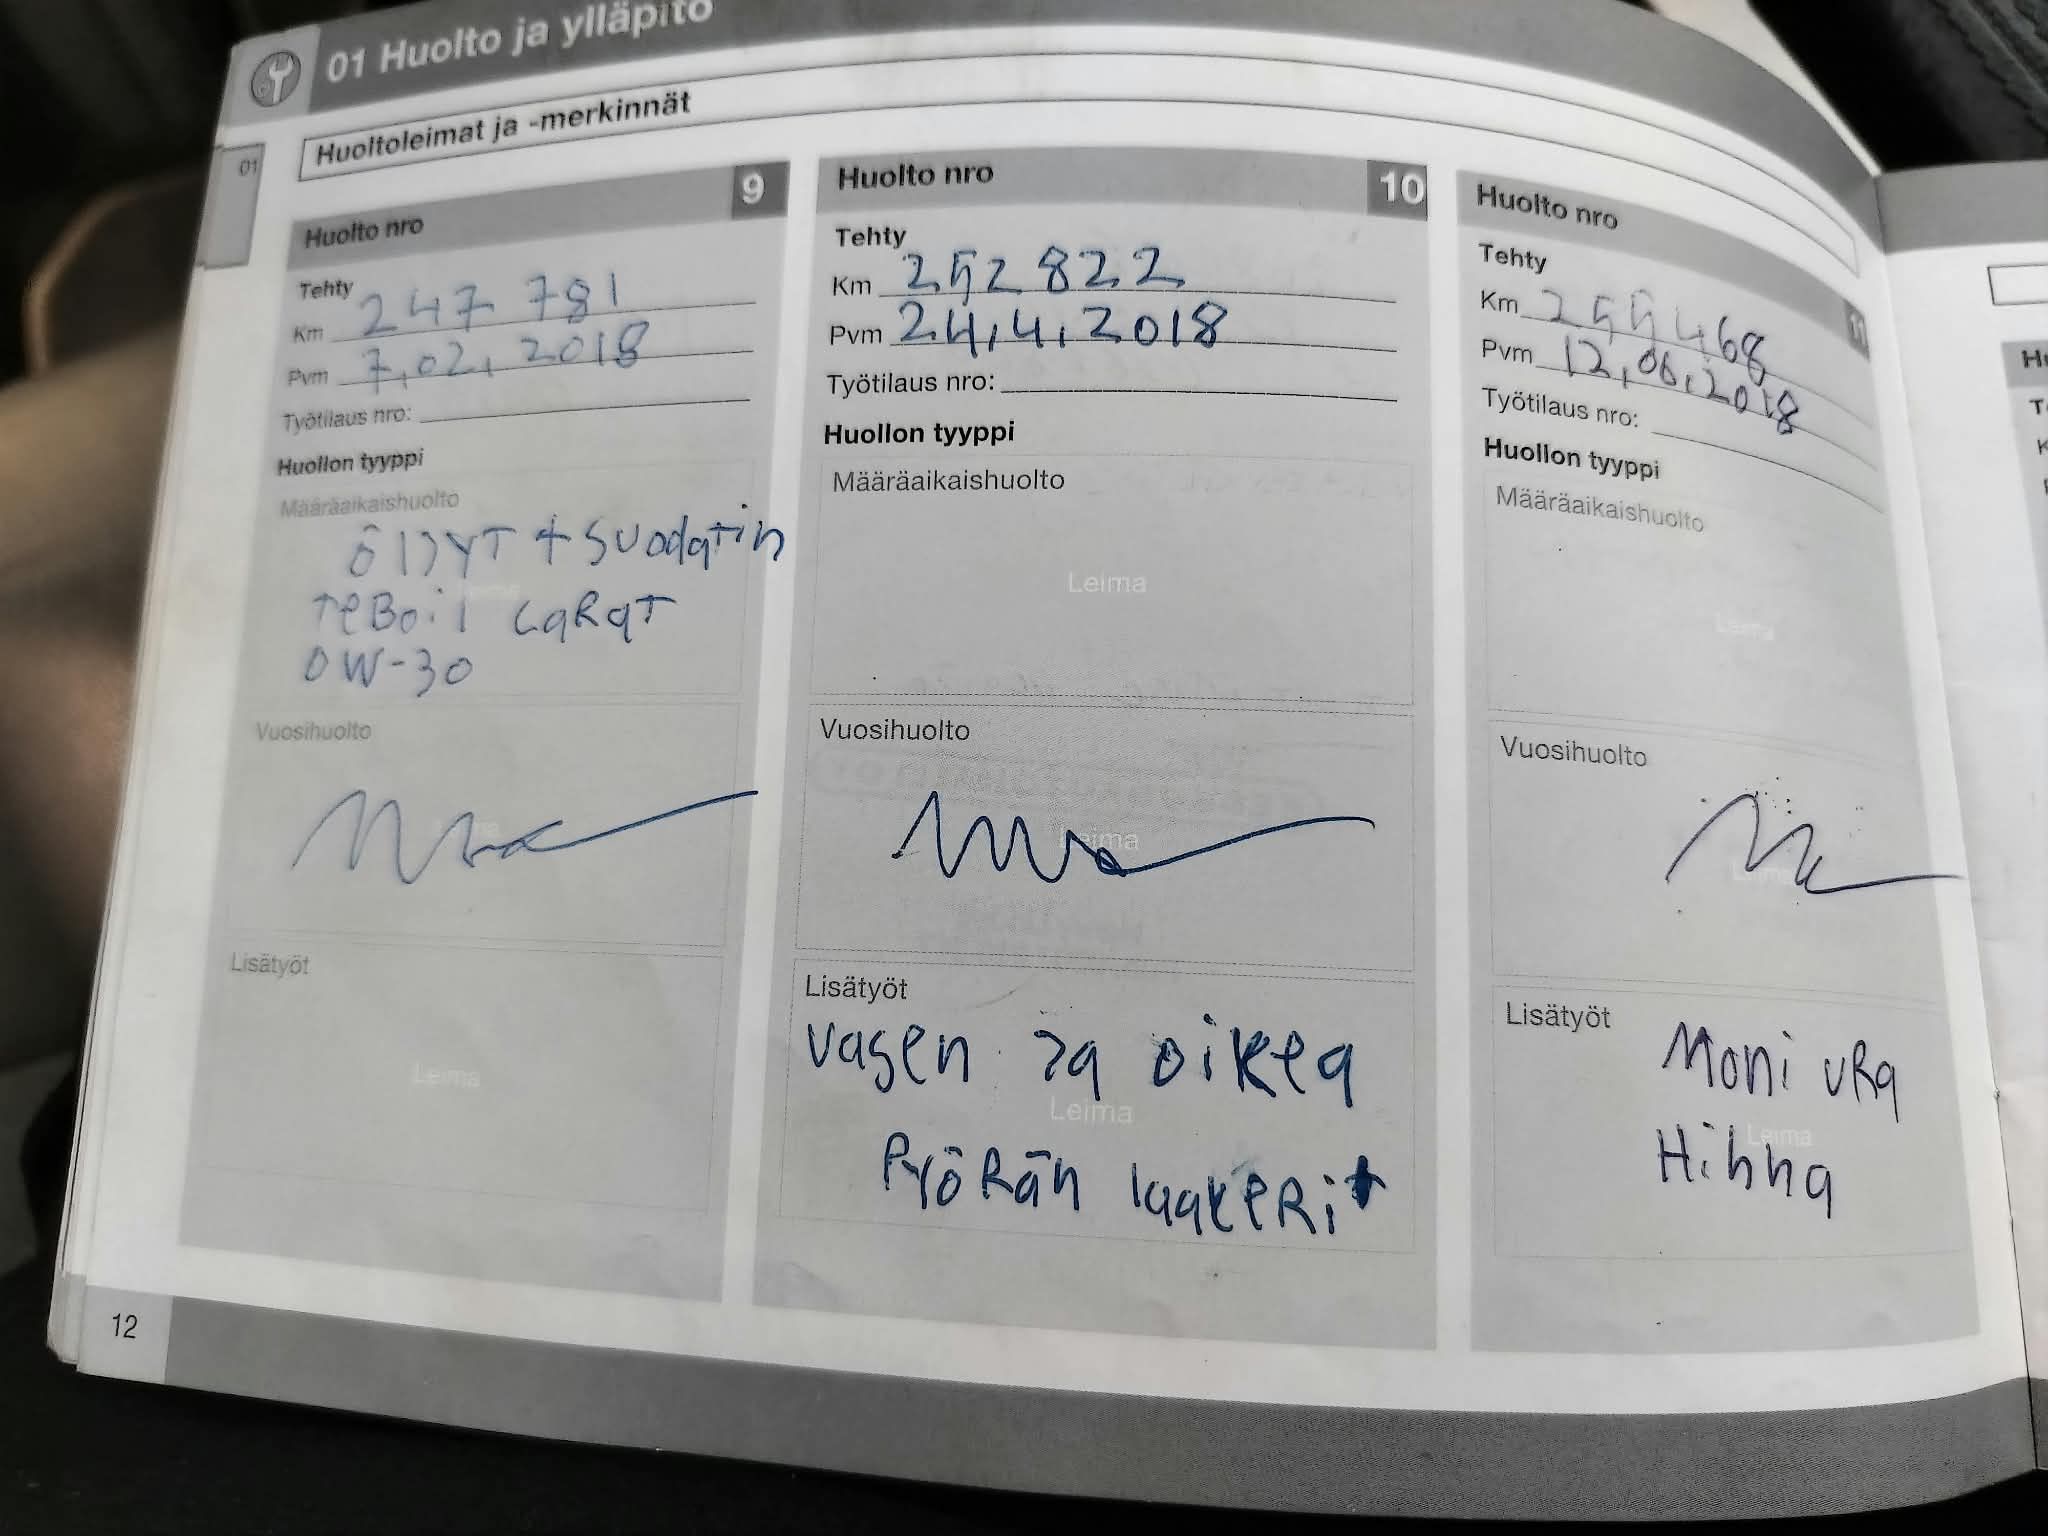 01 Huolto ja ylläpito
Huoltoleimat ja -merkinnät
01
Huolto nro 9
Tehty
Km 247 781
Pvm 7.02.2018
Työtilaus nro:
Huollon tyyppi
Määräaikaishuolto
ÖlJyT + Suodatin
TeBoil caRaT
0W-30
Vuosihuolto
Lisätyöt
Leima
Huolto nro 10
Tehty
Km 252 822
Pvm 24.4.2018
Työtilaus nro:
Huollon tyyppi
Määräaikaishuolto
Leima
Vuosihuolto
Leima
Lisätyöt
vasen ja oikea
Leima
PyöRän laakeRit
Huolto nro 11
Tehty
Km 255468
Pvm 12.06.2018
Työtilaus nro:
Huollon tyyppi
Määräaikaishuolto
Leima
Vuosihuolto
Leima
Lisätyöt
Moni uRa
Leima
Hihna
12